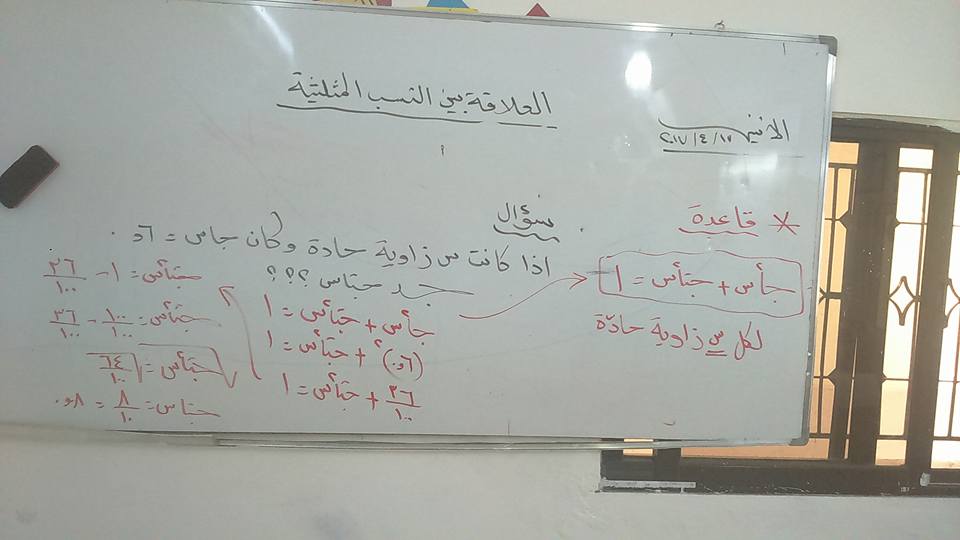 العلاقة بين النسب المثلثية
الاثنين
٢٠١٧/٤/١٧
* قاعدة
جا²س + جتا²س = ١
لكل س زاوية حادّة
سؤال
اذا كانت س زاوية حادة وكان جاس = ٦و٠
جد جتاس ؟؟؟
جا²س + جتا²س = ١
(٦و٠)² + جتا²س = ١
٣٦/١٠٠ + جتا²س = ١
جتا²س = ١ - ٣٦/١٠٠
جتا²س = ١٠٠/١٠٠ - ٣٦/١٠٠
√جتا²س = √٦٤/١٠٠
جتاس = ٨/١٠ = ٨و٠